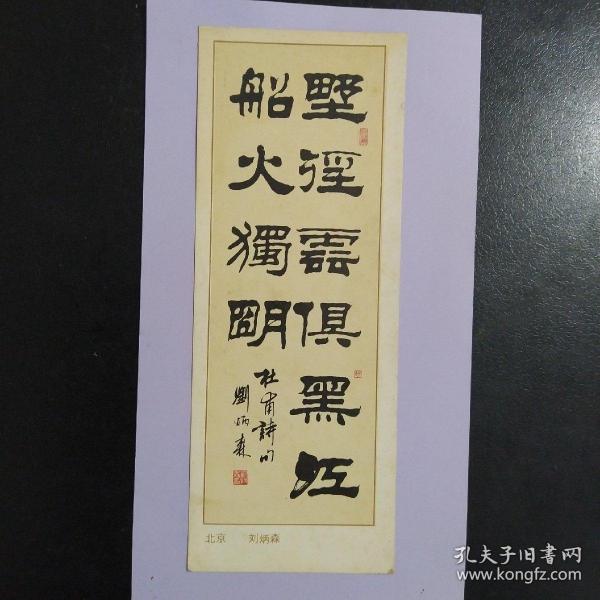 野徑雲俱黑江
船火獨明
杜甫詩句
劉炳森
北京 刘炳森
孔夫子旧书网
www.kongfz.com